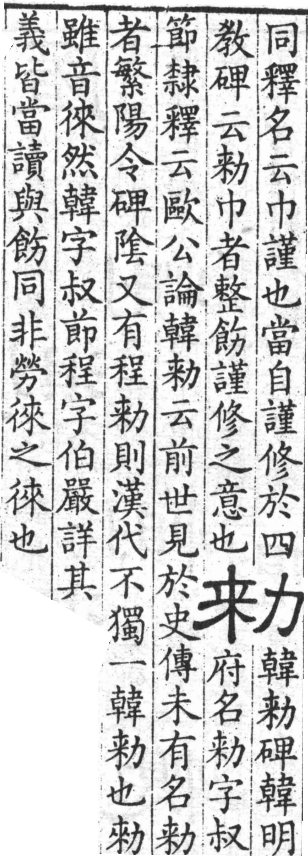 同釋名云巾謹也當自謹修於四
敎碑云勑巾者整飭謹修之意也
勑
韓勑碑韓明
府名勑字叔
節隸釋云歐公論韓勑云前世見於史傳未有名勑
者繁陽令碑陰又有程勑則漢代不獨一韓勑也勑
雖音徠然韓字叔節程字伯嚴詳其
義皆當讀與飭同非勞徠之徠也